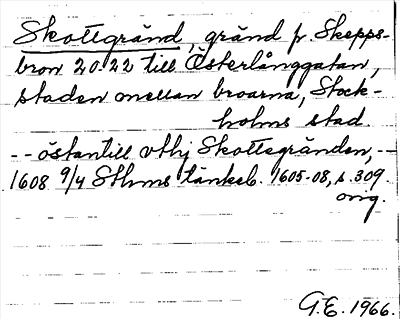 Skottgränd, gränd fr. Skepps-
bron 20-22 till Österlånggatan,
staden mellan broarna, Stock-
holms stad.
-- östantill vthj Skottegränden, --
1608 9/4 Sthms tänkeb. 1605-08, s. 309
orig.
G.E. 1966.